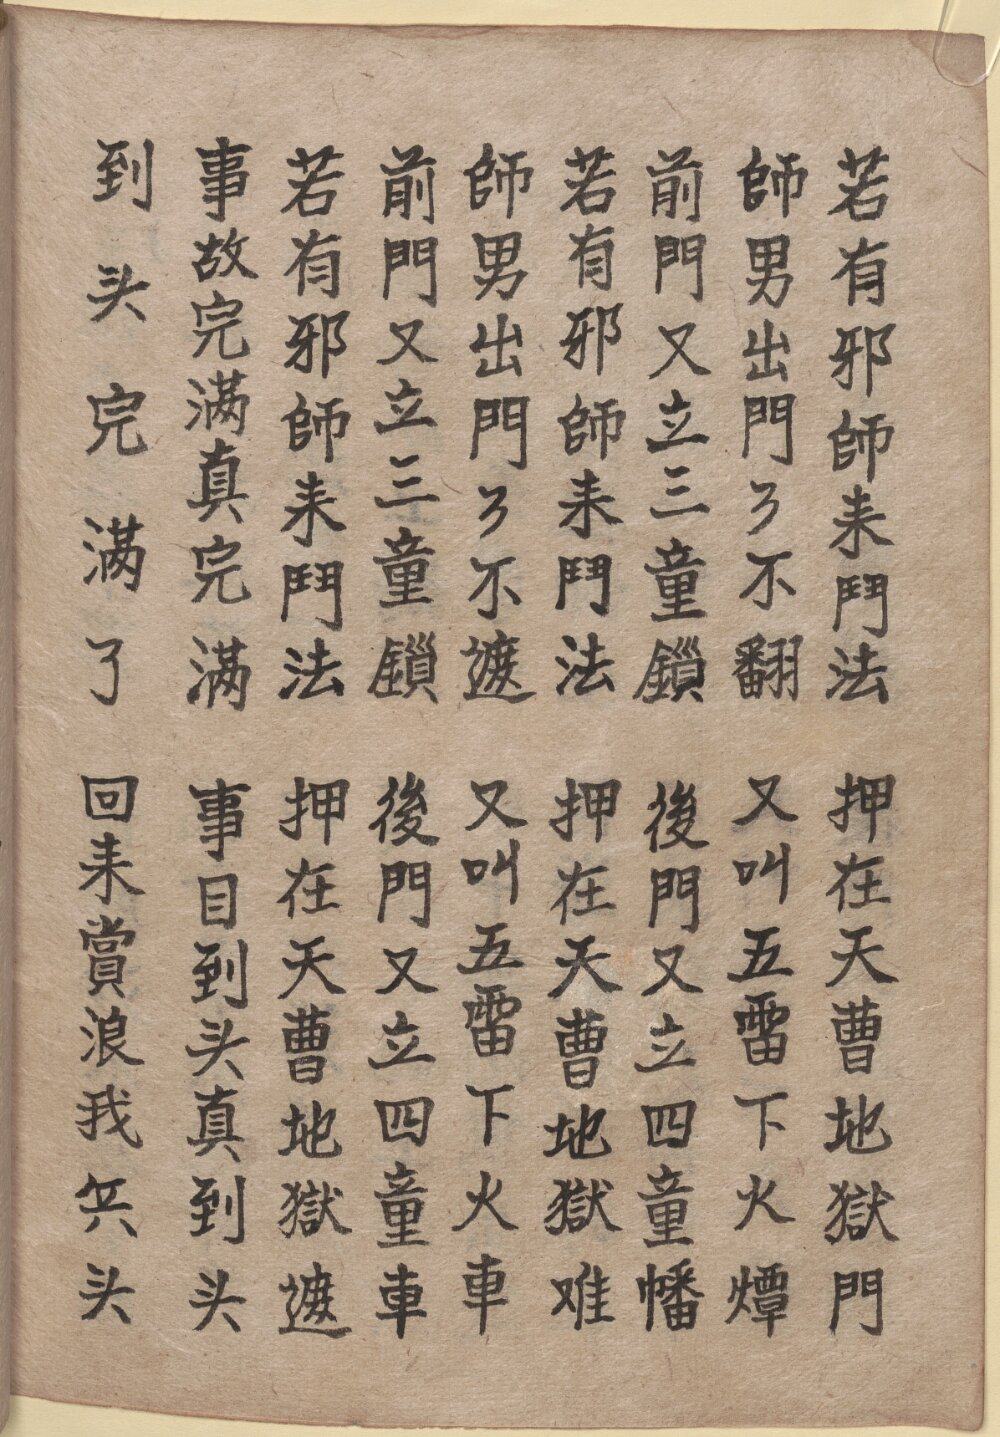 若有邪師耒鬥法 押在天曹地獄門
師男出門了不翻 又叫五雷下火燂
前門又立三童鎖 後門又立四童幡
若有邪師耒鬥法 押在天曹地獄难
師男出門了不遮 又叫五雷下火車
前門又立三童鎖 後門又立四童車
若有邪師耒鬥法 押在天曹地獄遮
事故完满真完满 事目到头真到头
到头完满了 回耒賞浪我兵头